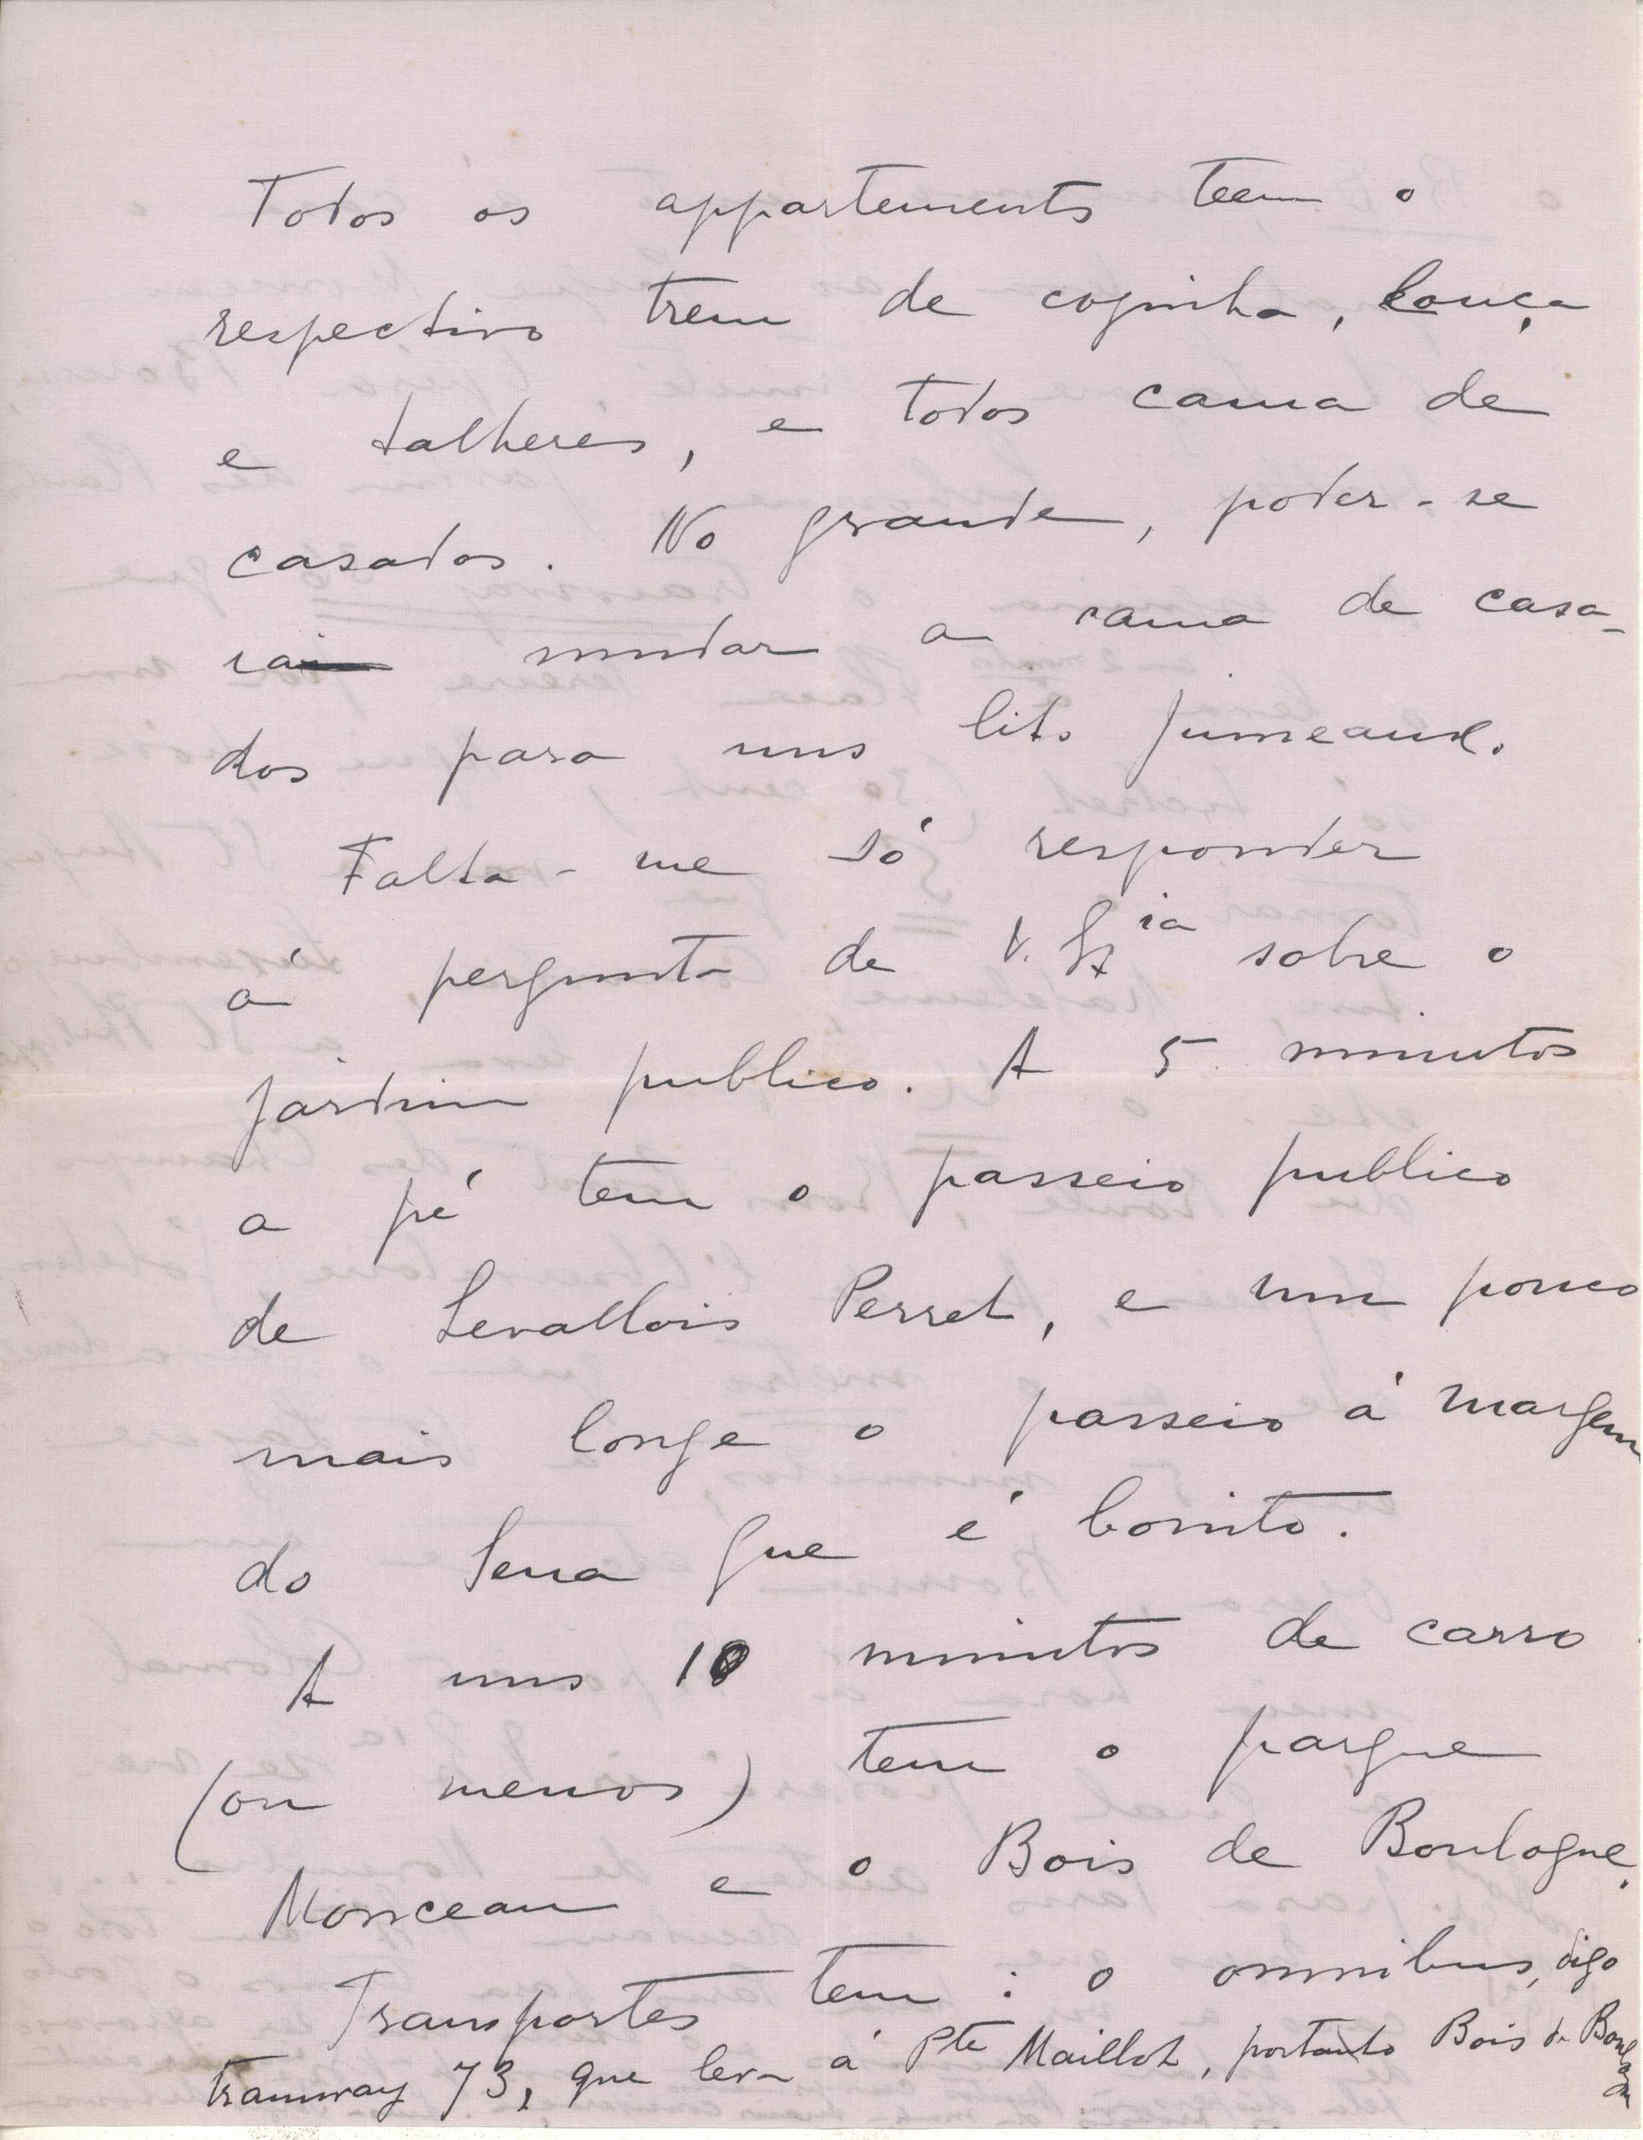 Todos os appartements teem o
respectivo trem de cozinha, louça
e talheres, e todos cama de
casados. No grande, poder-se
ia mudar a cama de casa-
dos para uns lits jumeaux.
Falta-me só responder
á pergunta de V. Ex.ia sobre o
jardim publico. A 5 minutos
a pé tem o passeio publico
de Levallois Perret, e um pouco
mais longe o passeio á margem
do Sena que é bonito.
A uns 10 minutos de carro
(ou menos) tem o parque
Monceau e o Bois de Boulogne.
Transportes tem: o omnibus, digo
tramway 73, que leva á Pte Maillot, portanto Bois de Boulogne